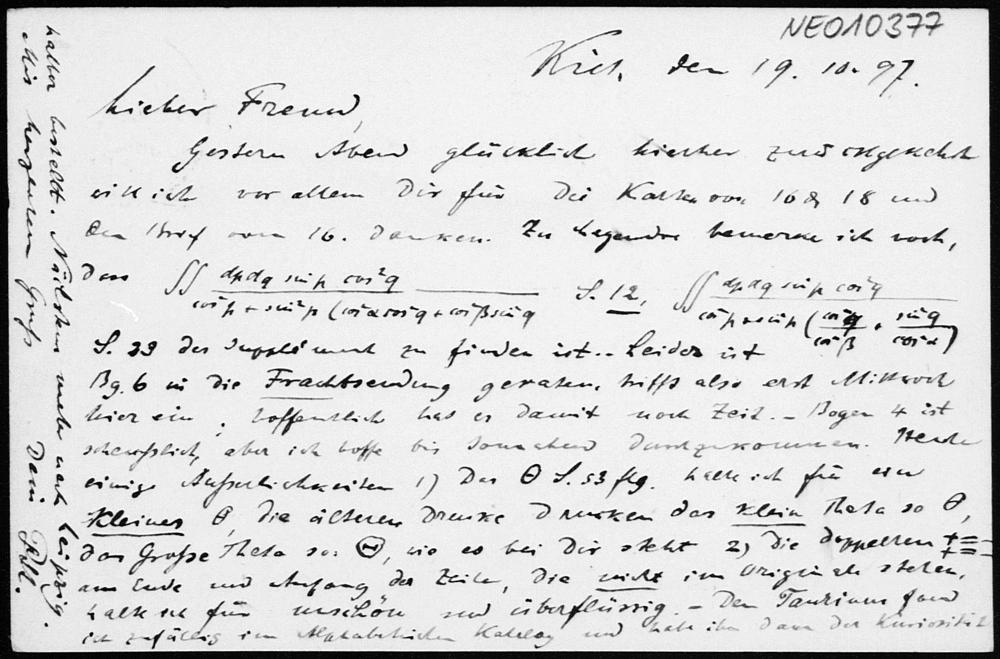 NEO10377
Kiel, den 19. 10. 97.
Lieber Freund,
Gestern Abend glücklich hierher zurückgekehrt
will ich vor allem Dir für die Karten von 16 & 18 und
den Brief vom 16. danken. Zu Legendre bemerke ich noch,
dass ∫∫ dpdq sin p cos²q / cos²p + sin²p (cos²α cos²q + cos²β sin²q) S. 12, ∫∫ dpdq sin p cos²q / cos²p + sin²p (cos²q / cos²β + sin²q / cos²α)
S. 33 des Supplément zu finden ist. – Leider ist
Bg. 6 in die Frachtsendung geraten, trifft also erst Mittwoch
hier ein, hoffentlich hat es damit noch Zeit. – Bogen 4 ist
scheusslich, aber ich hoffe bis Sonnabend durchzukommen. Heute
einige Äusserlichkeiten 1) Das Θ S. 53 flg. halte ich für ein
kleines θ, die älteren Drucke drucken das klein Theta so θ,
das Große Theta so: Θ, wie es bei Dir steht 2) die doppelten + = – + = –
am Ende und Anfang der Zeile, die nicht im Original stehen,
halte ich für unschön und überflüssig. – Den Taurinus fand
ich zufällig im Alphabetischen Katalog und habe ihn dann der Kuriosität
halber bestellt. Nächstens mehr nach Leipzig.
Mit herzlichem Gruss Dein